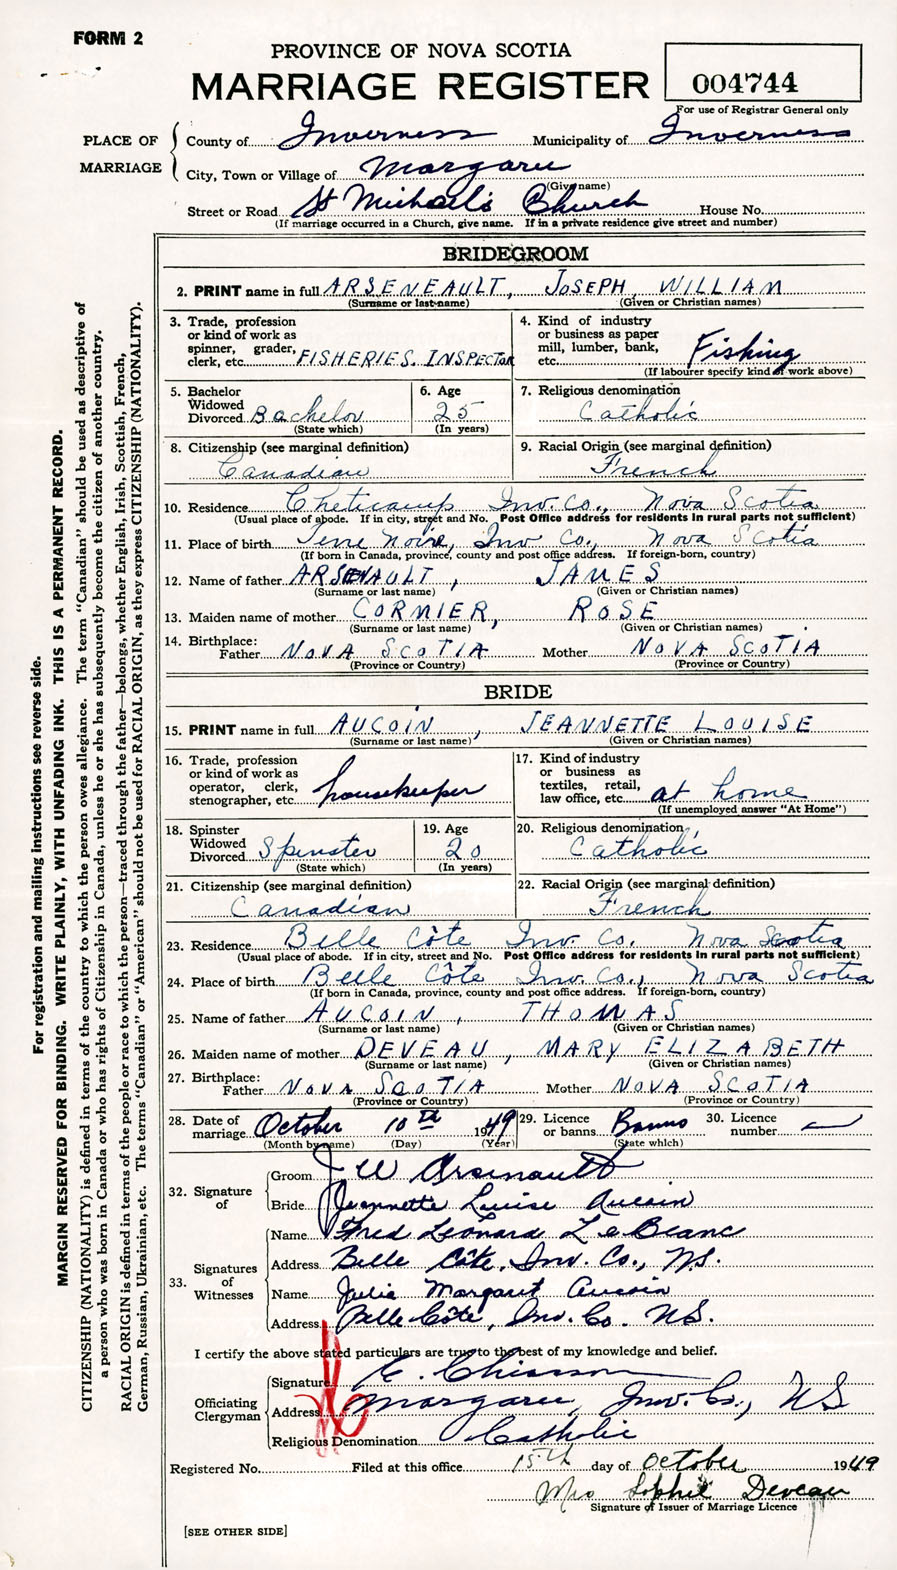 FORM 2
PROVINCE OF NOVA SCOTIA
MARRIAGE REGISTER
004744
For use of Registrar General only
PLACE OF MARRIAGE
County of Inverness Municipality of Inverness
City, Town or Village of Margaree
(Give name)
Street or Road St Michael's Church House No.
(If marriage occurred in a Church, give name. If in a private residence give street and number)
BRIDEGROOM
2. PRINT name in full ARSENEAULT, JOSEPH WILLIAM
(Surname or last name) (Given or Christian names)
3. Trade, profession or kind of work as spinner, grader, clerk, etc. FISHERIES. INSPECTOR
4. Kind of industry or business as paper mill, lumber, bank, etc. Fishing
(If labourer specify kind of work above)
5. Bachelor Widowed Divorced Bachelor
(State which)
6. Age 25
(In years)
7. Religious denomination
Catholic
8. Citizenship (see marginal definition)
Canadian
9. Racial Origin (see marginal definition)
French
10. Residence Cheticamp Inv. Co., Nova Scotia
(Usual place of abode. If in city, street and No. Post Office address for residents in rural parts not sufficient)
11. Place of birth Terre Noire, Inv Co., Nova Scotia
(If born in Canada, province, county and post office address. If foreign-born, country)
12. Name of father ARSENAULT, JAMES
(Surname or last name) (Given or Christian names)
13. Maiden name of mother CORMIER, ROSE
(Surname or last name) (Given or Christian names)
14. Birthplace:
Father NOVA SCOTIA Mother NOVA SCOTIA
(Province or Country) (Province or Country)
BRIDE
15. PRINT name in full AUCOIN, JEANNETTE LOUISE
(Surname or last name) (Given or Christian names)
16. Trade, profession or kind of work as operator, clerk, stenographer, etc. housekeeper
17. Kind of industry or business as textiles, retail, law office, etc. at home
(If unemployed answer "At Home")
18. Spinster Widowed Divorced Spinster
(State which)
19. Age 20
(In years)
20. Religious denomination
Catholic
21. Citizenship (see marginal definition)
Canadian
22. Racial Origin (see marginal definition)
French
23. Residence Belle Côte Inv. Co. Nova Scotia
(Usual place of abode. If in city, street and No. Post Office address for residents in rural parts not sufficient)
24. Place of birth Belle Côte Inv. Co., Nova Scotia
(If born in Canada, province, county and post office address. If foreign-born, country)
25. Name of father AUCOIN, THOMAS
(Surname or last name) (Given or Christian names)
26. Maiden name of mother DEVEAU, MARY ELIZABETH
(Surname or last name) (Given or Christian names)
27. Birthplace:
Father NOVA SCOTIA Mother NOVA SCOTIA
(Province or Country) (Province or Country)
28. Date of marriage October 10th 1949
(Month by name) (Day) (Year)
29. Licence or banns Banns
(State which)
30. Licence number —
32. Signature of
Groom J W Arsenault
Bride Jeannette Luise Aucoin
33. Signatures of Witnesses
Name Fred Leonard LeBlanc
Address Belle Côte, Inv. Co., N.S.
Name Julie Margaret Aucoin
Address Belle Côte, Inv. Co. N.S.
I certify the above stated particulars are true to the best of my knowledge and belief.
Officiating Clergyman
Signature C. Chiasson
Address Margaree, Inv. Co., N S
Religious Denomination Catholic
Registered No. Filed at this office 15th day of October 1949
Mrs Sophie Deveau
Signature of Issuer of Marriage Licence
[SEE OTHER SIDE]
For registration and mailing instructions see reverse side.
MARGIN RESERVED FOR BINDING. WRITE PLAINLY, WITH UNFADING INK. THIS IS A PERMANENT RECORD.
CITIZENSHIP (NATIONALITY) is defined in terms of the country to which the person owes allegiance. The term "Canadian" should be used as descriptive of
a person who was born in Canada or who has rights of Citizenship in Canada, unless he or she has subsequently become the citizen of another country.
RACIAL ORIGIN is defined in terms of the people or race to which the person—traced through the father—belongs, whether English, Irish, Scottish, French,
German, Russian, Ukrainian, etc. The terms "Canadian" or "American" should not be used for RACIAL ORIGIN, as they express CITIZENSHIP (NATIONALITY).